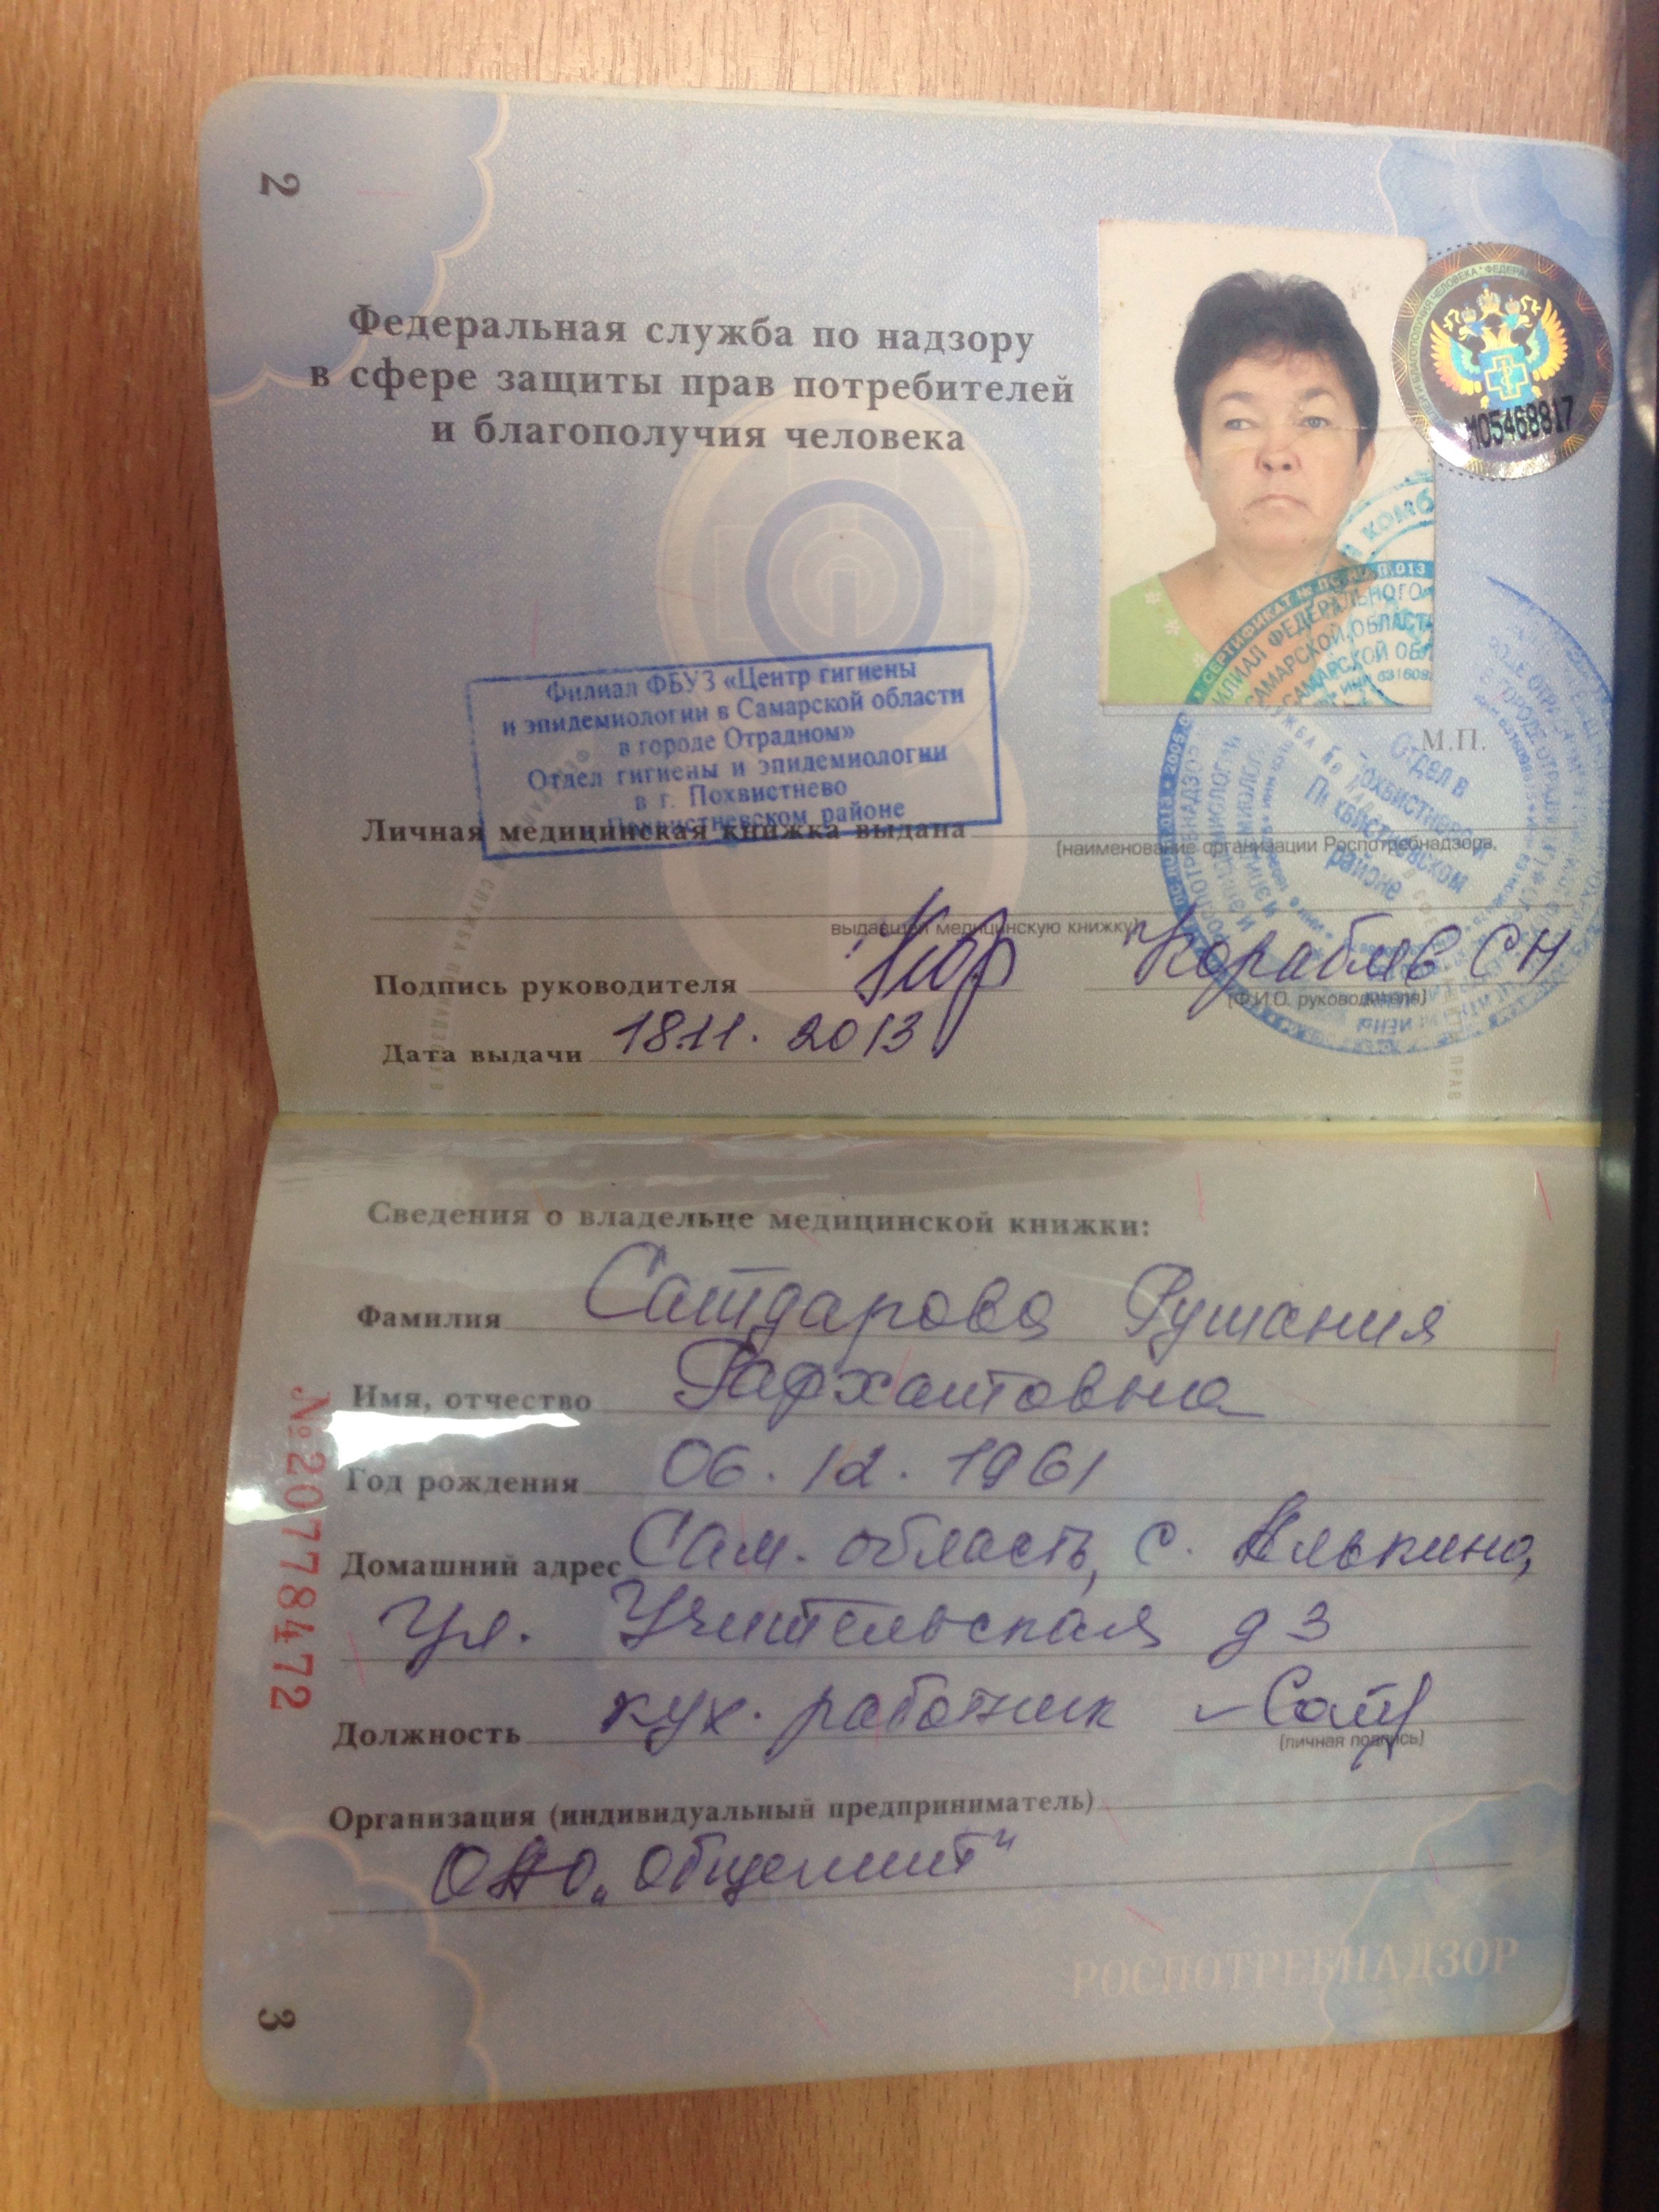 2
Федеральная служба по надзору
в сфере защиты прав потребителей
и благополучия человека
М05468817
Филиал ФБУЗ «Центр гигиены
и эпидемиологии в Самарской области
в городе Отрадном»
Отдел гигиены и эпидемиологии
в г. Похвистнево
Похвистневском районе
М.П.
Отдел в
Похвистнево и
Похвистневском
районе
Личная медицинская книжка выдана
(наименование организации Роспотребнадзора,
выдавшей медицинскую книжку)
Подпись руководителя Кораблев СН
(Ф.И.О. руководителя)
Дата выдачи 18.11. 2013
Сведения о владельце медицинской книжки:
Фамилия Сатдарова Рушания
Имя, отчество Рафхатовна
Год рождения 06.12.1961
Домашний адрес Сам. область, с. Алькино,
ул. Учительская д 3
Должность кух. работник
(личная подпись)
Организация (индивидуальный предприниматель)
ОАО „Общепит"
№2077847​2
РОСПОТРЕБНАДЗОР
3